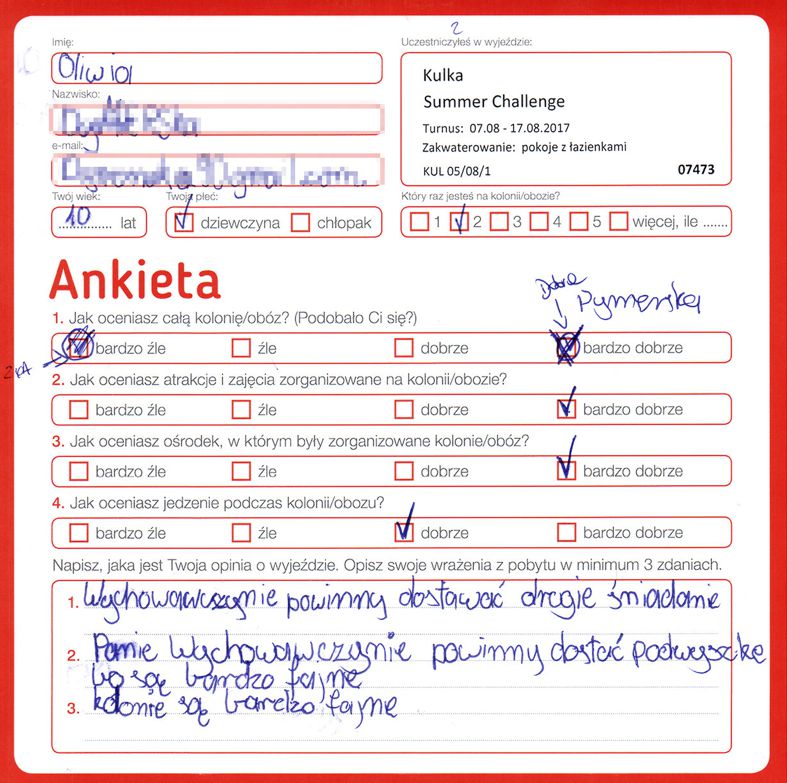 2
Imię:
Oliwia
Uczestniczyłeś w wyjeździe:
Kulka
Summer Challenge
Turnus: 07.08 - 17.08.2017
Zakwaterowanie: pokoje z łazienkami
KUL 05/08/1 07473
Nazwisko:
e-mail:
Twój wiek: Twoja płeć: Który raz jesteś na kolonii/obozie?
10 lat dziewczyna chłopak 1 2 3 4 5 więcej, ile .......
Ankieta
Dobrze
1. Jak oceniasz całą kolonię/obóz? (Podobało Ci się?)
bardzo źle źle dobrze bardzo dobrze
2. Jak oceniasz atrakcje i zajęcia zorganizowane na kolonii/obozie?
bardzo źle źle dobrze bardzo dobrze
3. Jak oceniasz ośrodek, w którym były zorganizowane kolonie/obóz?
bardzo źle źle dobrze bardzo dobrze
4. Jak oceniasz jedzenie podczas kolonii/obozu?
bardzo źle źle dobrze bardzo dobrze
Napisz, jaka jest Twoja opinia o wyjeździe. Opisz swoje wrażenia z pobytu w minimum 3 zdaniach.
1. Wychowawczynie powinny dostawać drogie śniadanie
2. Panie Wychowawczynie powinny dostać Podwyszke
bo są bardzo fajne
3. kolonie są bardzo fajne